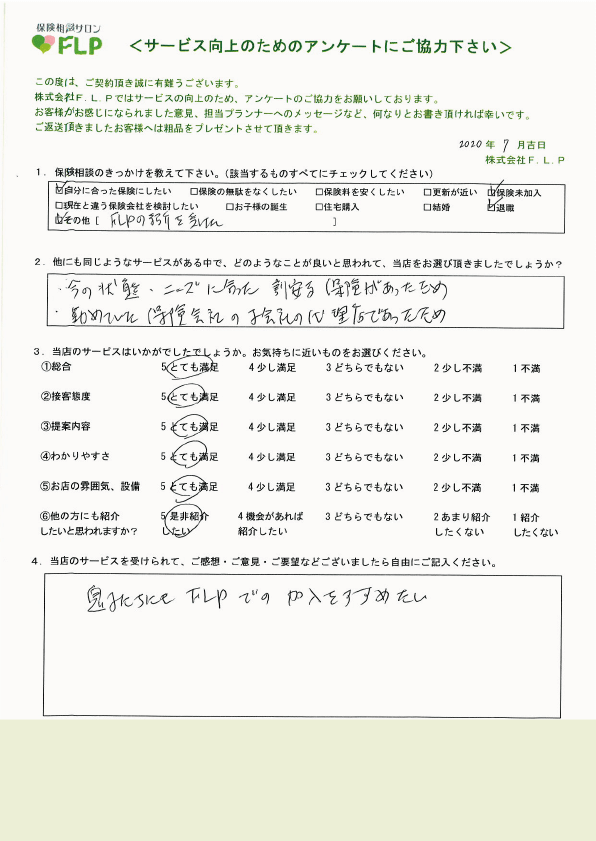 保険相談サロン
FLP
＜サービス向上のためのアンケートにご協力下さい＞
この度は、ご契約頂き誠に有難うございます。
株式会社F．L．Pではサービスの向上のため、アンケートのご協力をお願いしております。
お客様がお感じになられました意見、担当プランナーへのメッセージなど、何なりとお書き頂ければ幸いです。
ご返送頂きましたお客様へは粗品をプレゼントさせて頂きます。
2020 年 7 月吉日
株式会社F．L．P
1．保険相談のきっかけを教えて下さい。（該当するものすべてにチェックしてください）
☑自分に合った保険にしたい □保険の無駄をなくしたい □保険料を安くしたい □更新が近い ☑保険未加入
□現在と違う保険会社を検討したい □お子様の誕生 □住宅購入 □結婚 ☑退職
☑その他［ FLPの紹介を受けた ］
2．他にも同じようなサービスがある中で、どのようなことが良いと思われて、当店をお選び頂きましたでしょうか？
・今の状態・ニーズに合った 割安な保険があったため
・勤めていた保険会社の子会社の代理店であったため
3．当店のサービスはいかがでしたでしょうか。お気持ちに近いものをお選びください。
①総合 5 とても満足 4 少し満足 3 どちらでもない 2 少し不満 1 不満
②接客態度 5 とても満足 4 少し満足 3 どちらでもない 2 少し不満 1 不満
③提案内容 5 とても満足 4 少し満足 3 どちらでもない 2 少し不満 1 不満
④わかりやすさ 5 とても満足 4 少し満足 3 どちらでもない 2 少し不満 1 不満
⑤お店の雰囲気、設備 5 とても満足 4 少し満足 3 どちらでもない 2 少し不満 1 不満
⑥他の方にも紹介 5 是非紹介 4 機会があれば 3 どちらでもない 2 あまり紹介 1 紹介
したいと思われますか？ したい 紹介したい したくない したくない
4．当店のサービスを受けられて、ご感想・ご意見・ご要望などございましたら自由にご記入ください。
息子たちにも FLP での 加入をすすめたい